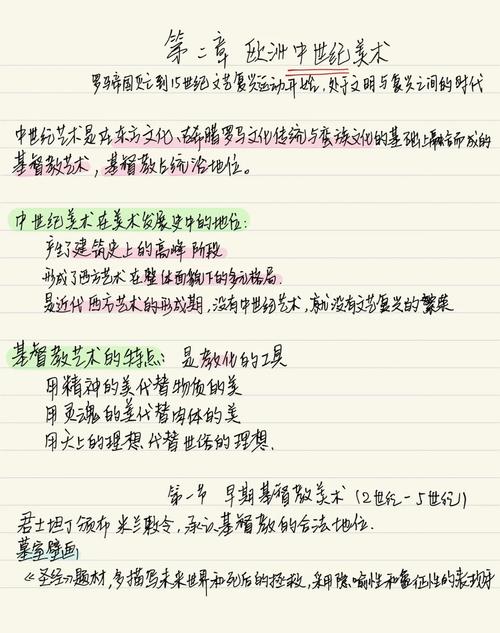 第二章 欧洲中世纪美术
罗马帝国灭亡到15世纪文艺复兴运动开始，处于文明与复兴之间的时代
中世纪艺术是在东方文化、古希腊罗马文化传统与蛮族文化的基础上融合而成的
基督教艺术，基督教占统治地位。
中世纪美术在美术发展史中的地位：
产生了建筑史上的高峰阶段
形成了西方艺术在整体面貌下的多元格局.
是近代西方艺术的形成期，没有中世纪艺术，就没有文艺复兴的繁荣
基督教艺术的特点：是教化的工具
用精神的美代替物质的美
用灵魂的美代替肉体的美
用天上的理想代替世俗的理想.
第一节 早期基督教美术（2世纪-5世纪）
君士坦丁颁布米兰敕令，承认基督教的合法地位.
墓室壁画
《圣经》题材，多描写未来世界和死后的拯救，采用隐喻性和象征性的表现手